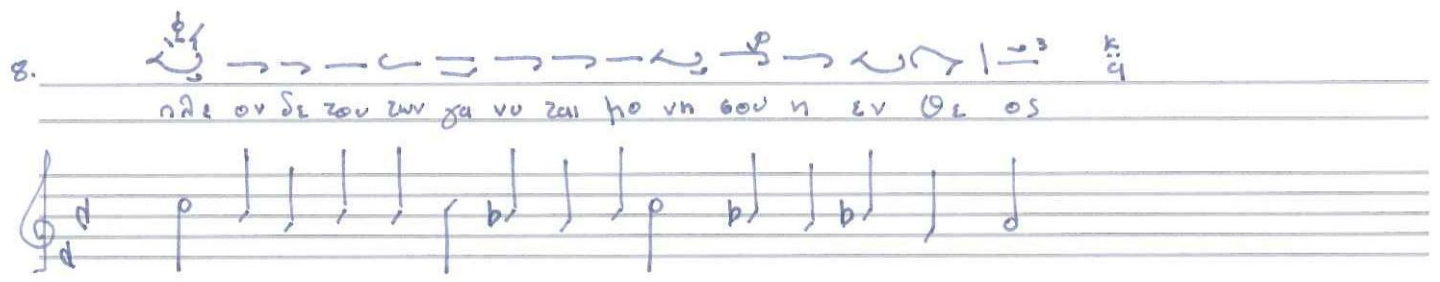 8.
πλε ον δε του των γα νυ ται μο νη σου η εν θε ος